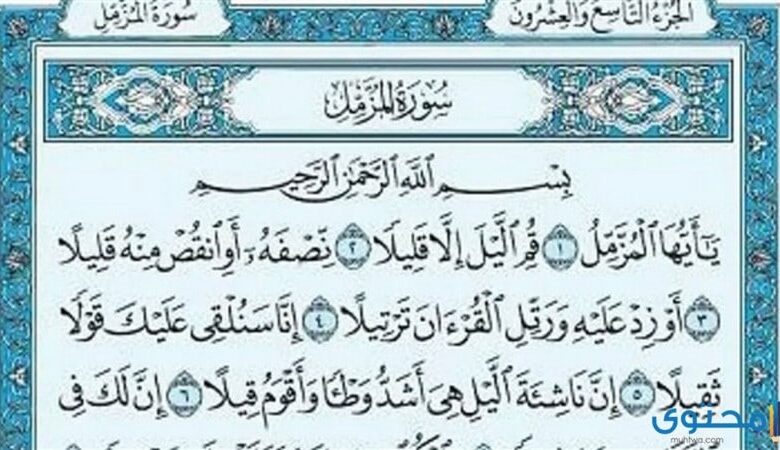 الجُزْءُ التَّاسِعُ وَالْعِشْرُونَ
سُورَةُ المُزَّمِّلِ
سُورَةُ المُزَّمِّلِ
بِسْمِ اللَّهِ الرَّحْمَٰنِ الرَّحِيمِ
يَٰٓأَيُّهَا ٱلْمُزَّمِّلُ ١ قُمِ ٱلَّيْلَ إِلَّا قَلِيلًا ٢ نِّصْفَهُۥٓ أَوِ ٱنقُصْ مِنْهُ قَلِيلًا
٣ أَوْ زِدْ عَلَيْهِ وَرَتِّلِ ٱلْقُرْءَانَ تَرْتِيلًا ٤ إِنَّا سَنُلْقِى عَلَيْكَ قَوْلًا
ثَقِيلًا ٥ إِنَّ نَاشِئَةَ ٱلَّيْلِ هِىَ أَشَدُّ وَطْـًٔا وَأَقْوَمُ قِيلًا ٦ إِنَّ لَكَ فِى
محتوى
muhtwa.com